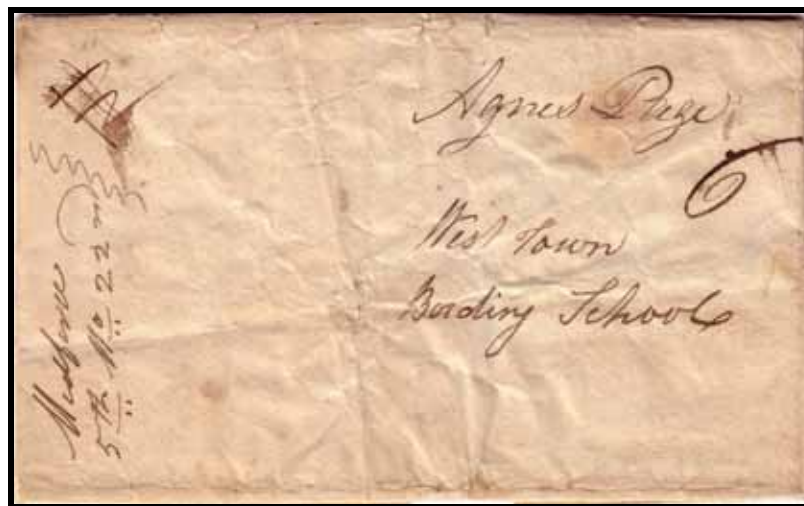 Agnes Page
6
West Town
Bording School
Medford
5th Mo 22nd